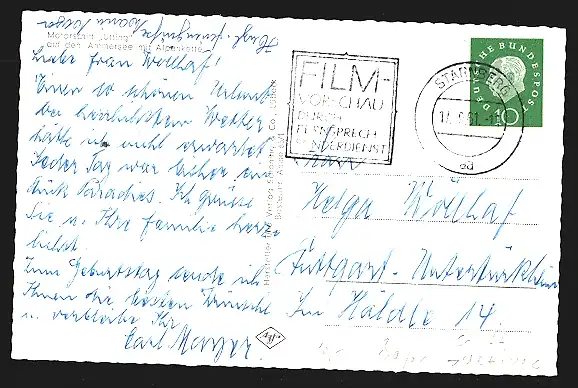 Herzl. Feriengrüße
Motorschiff „Utting“
auf dem Ammersee mit Alpenkette
Liebe Frau Wollhaf!
Einen so schönen Urlaub
bei herrlichstem Wetter
hätte ich nicht erwartet
Jeder Tag war bisher ein
Stück Paradies. Ich grüße
Sie u. Ihre Familie herz-
lichst.
Zum Geburtstag sende ich
Ihnen die besten Wünsche
u. verbleibe Ihr
Carl Mayer
FILM-
VORSCHAU
DURCH
FERNSPRECH
SONDERDIENST
STARNBERG
DEUTSCHE BUNDESPOST
10
Agfa
Frau
Helga Wollhaf
Stuttgart-Untertürkheim
Im Häldle 14.